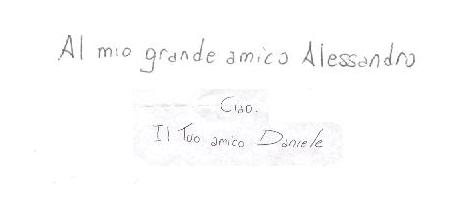 Al mio grande amico Alessandro
Ciao.
Il Tuo amico Daniele